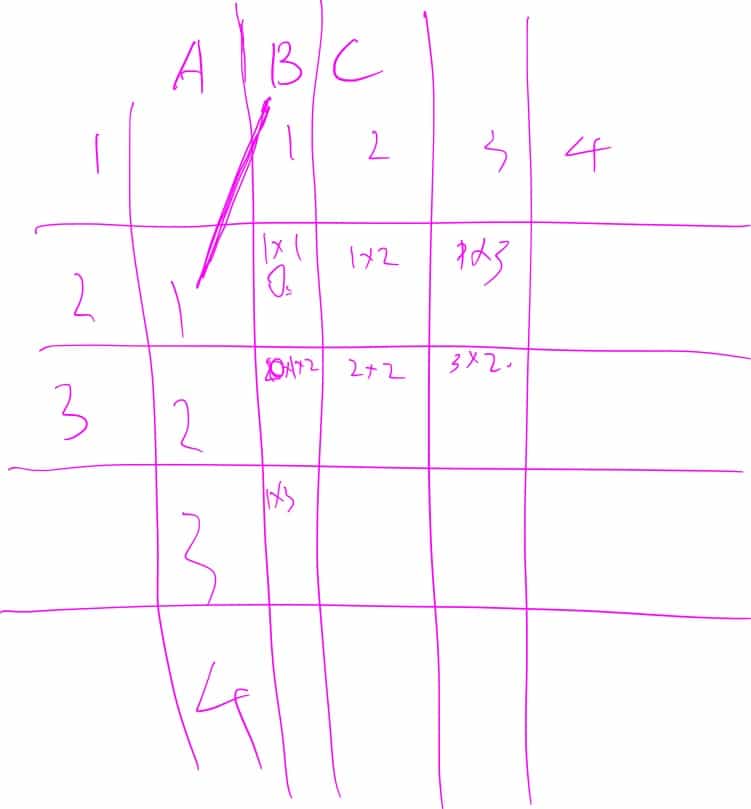 A B C
1 1 2 3 4
2 1 1x1 1x2 1x3
0.
1x2 2+2 3x2.
3 2
1x3
3
4